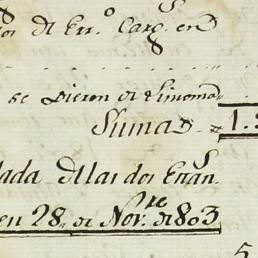 de Err.º Carg.s en
se Dieron de Limosna
Suma 1.
lada de las dos
en 28, de Nov.re de 1803
5